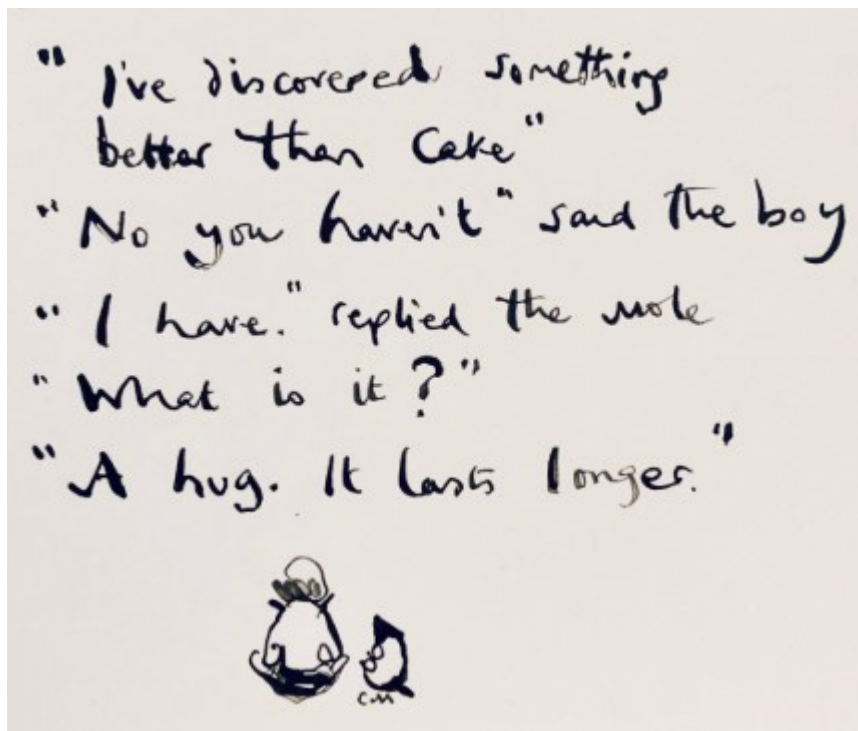 " I've discovered something
better than Cake"
"No you haven't" said the boy
"I have." replied the mole
"What is it?"
"A hug. It lasts longer."
C.M